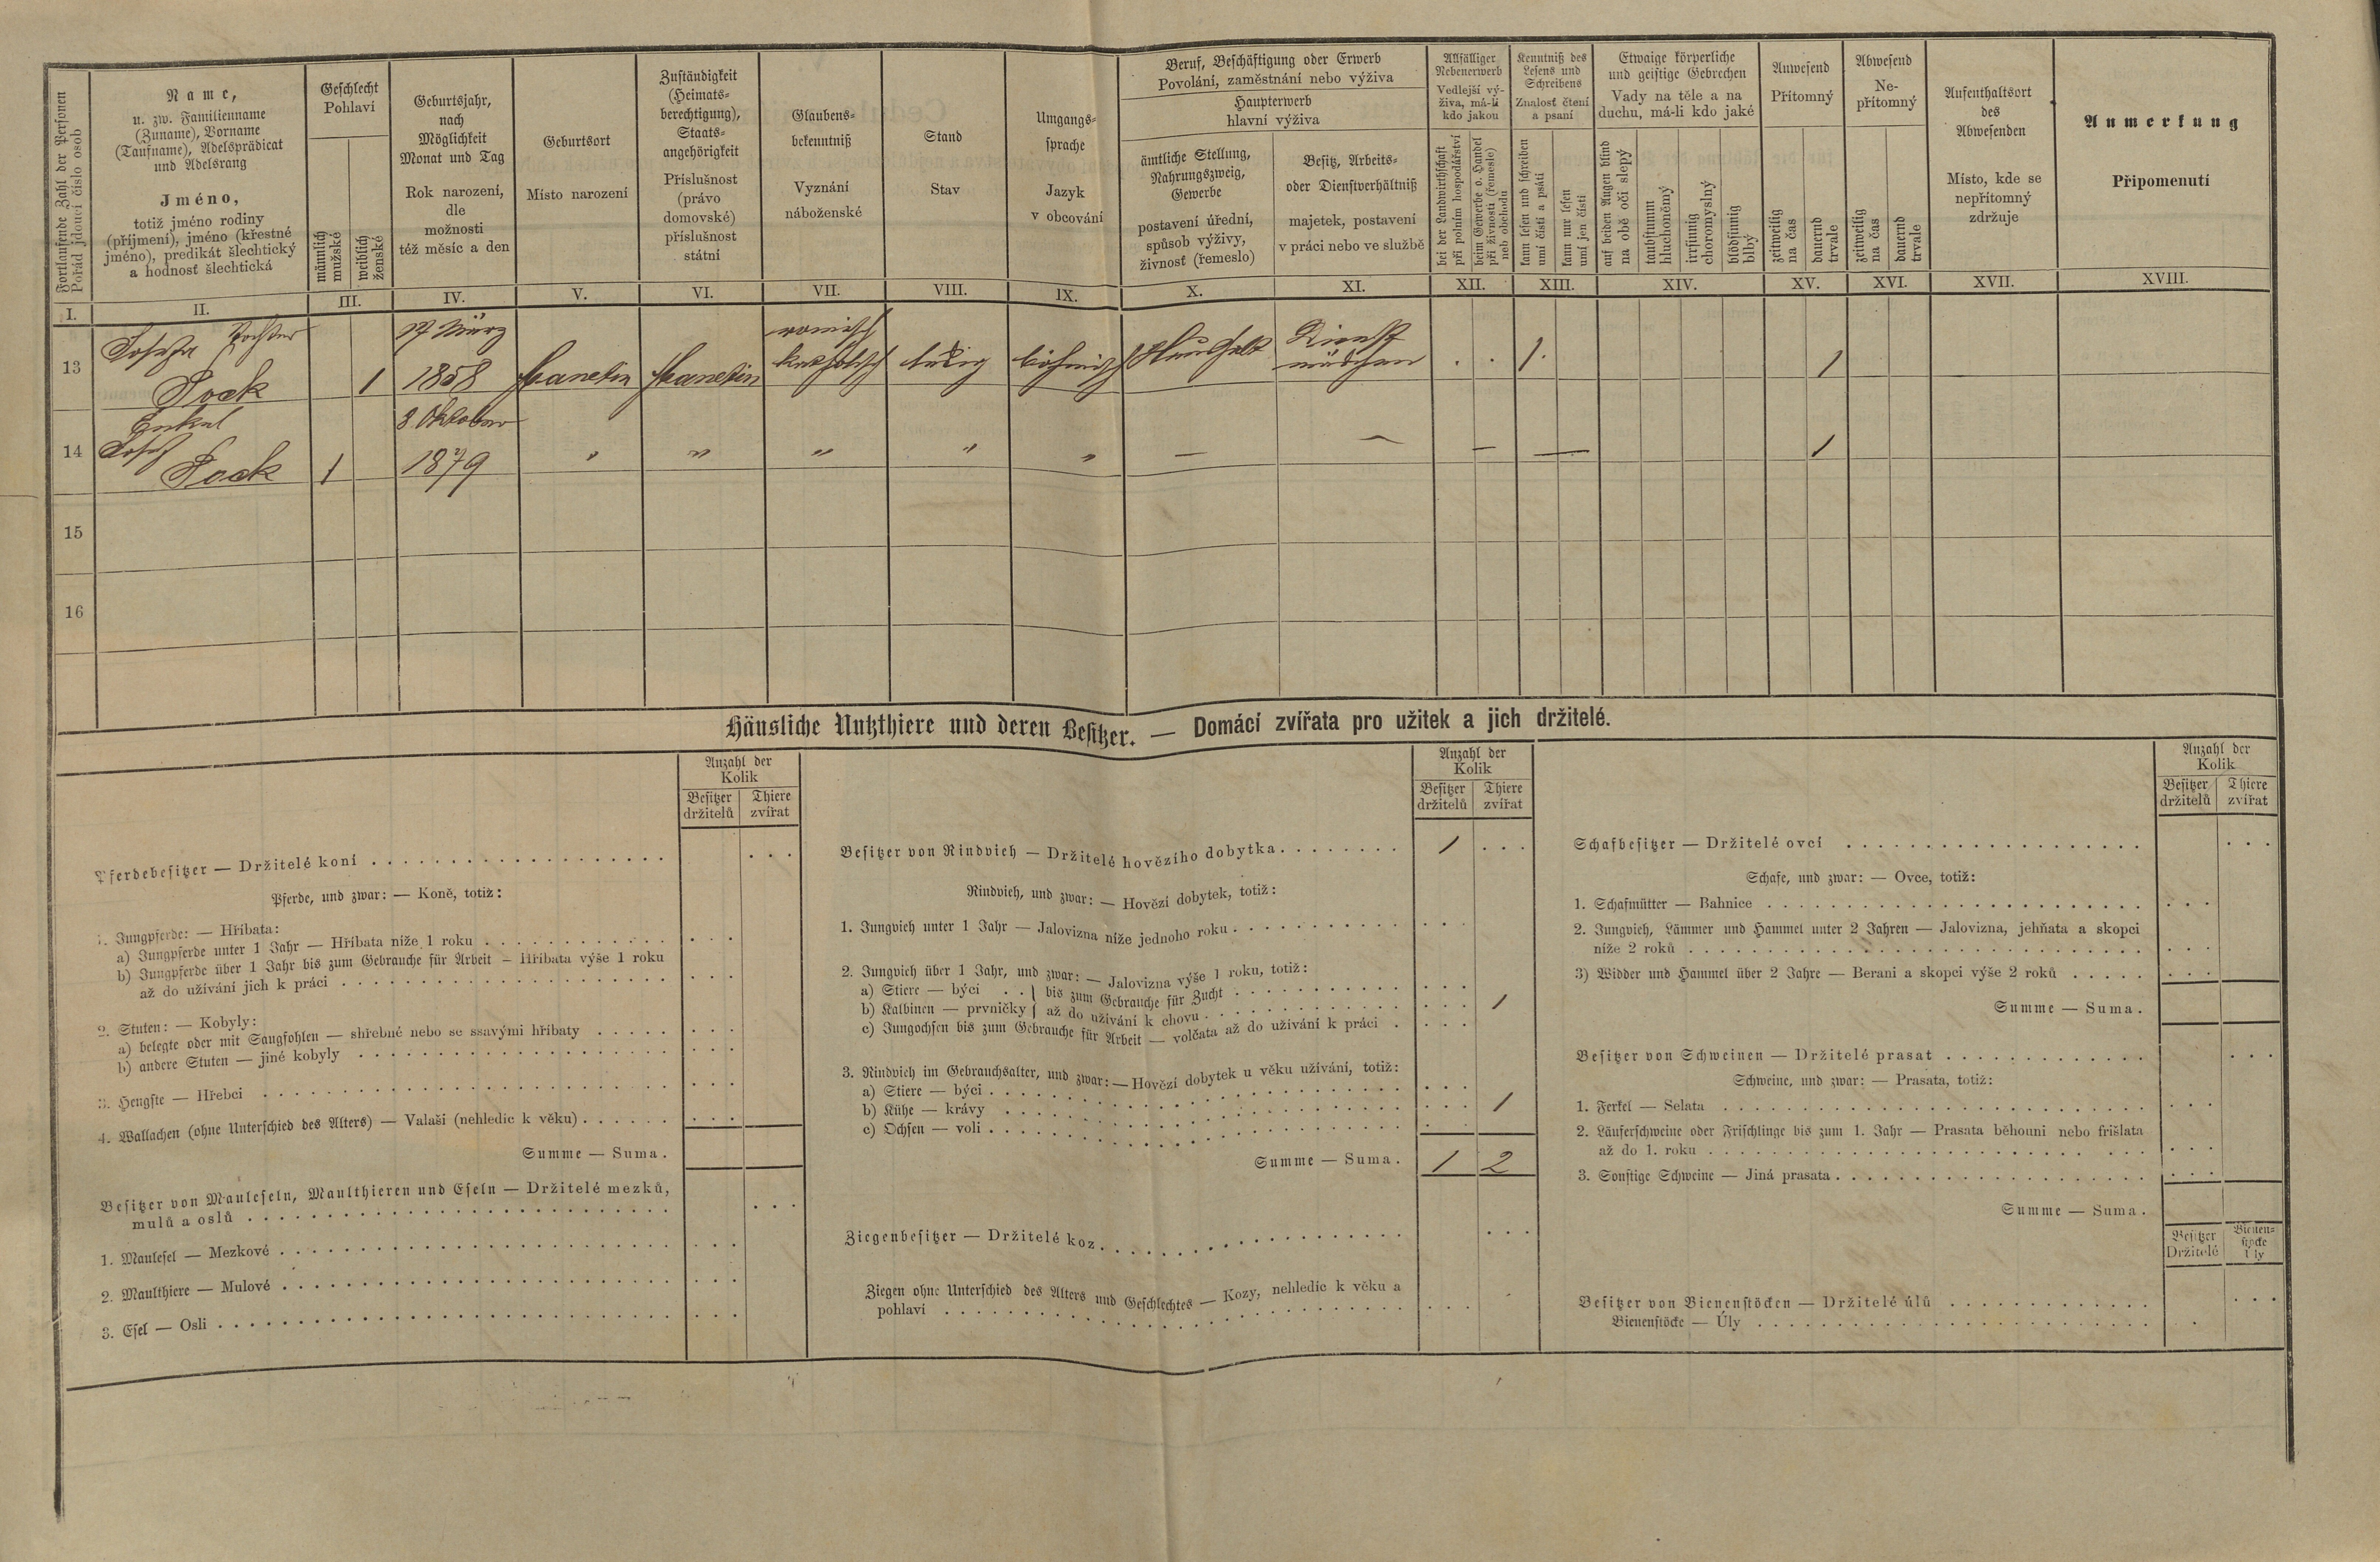 Fortlaufende Zahl der Personen
Pořád jdoucí číslo osob
Name,
u. zw. Familienname
(Zuname), Vorname
(Taufname), Adelsprädicat
und Adelsrang
Jméno,
totiž jméno rodiny
(příjmení), jméno (křestné
jméno), predikát šlechtický
a hodnosť šlechtická
Geschlecht
Pohlaví
männlich
mužské
weiblich
ženské
Geburtsjahr,
nach
Möglichkeit
Monat und Tag
Rok narození,
dle
možnosti
též měsíc a den
Geburtsort
Místo narození
Zuständigkeit
(Heimats-
berechtigung),
Staats-
angehörigkeit
Příslušnost
(právo
domovské)
příslušnost
státní
Glaubens-
bekenntniß
Vyznání
náboženské
Stand
Stav
Umgangs-
sprache
Jazyk
v obcování
Beruf, Beschäftigung oder Erwerb
Povolání, zaměstnání nebo výživa
Haupterwerb
hlavní výživa
ämtliche Stellung,
Nahrungszweig,
Gewerbe
postavení úřední,
spůsob výživy,
živnosť (řemeslo)
Besitz, Arbeits-
oder Dienstverhältniß
majetek, postavení
v práci nebo ve službě
Allfälliger
Nebenerwerb
Vedlejší vý-
živa, má-li
kdo jakou
bei der Landwirthschaft
při polním hospodářství
beim Gewerbe o. Handel
při živnosti (řemesle)
neb obchodu
Kenntniß des
Lesens und
Schreibens
Znalosť čtení
a psaní
kann lesen und schreiben
umí čísti a psáti
kann nur lesen
umí jen čísti
Etwaige körperliche
und geistige Gebrechen
Vady na těle a na
duchu, má-li kdo jaké
auf beiden Augen blind
na obě oči slepý
taubstumm
hluchoněmý
irrsinnig
choromyslný
blödsinnig
blbý
Anwesend
Přítomný
zeitweilig
na čas
dauernd
trvale
Abwesend
Ne-
přítomný
zeitweilig
na čas
dauernd
trvale
Aufenthaltsort
des
Abwesenden
Místo, kde se
nepřítomný
zdržuje
Anmerkung
Připomenutí
I. II. III. IV. V. VI. VII. VIII. IX. X. XI. XII. XIII. XIV. XV. XVI. XVII. XVIII.
Tochter 17 März römisch Dienst
13 Josefa 1 1858 Manetin Manetin katholisch ledig böhmisch Haushalt mädchen . . 1 . 1
Sock
Enkel 8 Oktober
14 Josef 1 1879 " " " " " — — — — 1
Sock
15
16
Häusliche Nutzthiere und deren Besitzer. — Domácí zvířata pro užitek a jich držitelé.
Anzahl der
Kolik
Besitzer Thiere
držitelů zvířat
Pferdebesitzer — Držitelé koní
Pferde, und zwar: — Koně, totiž:
1. Jungpferde: — Hříbata:
a) Jungpferde unter 1 Jahr — Hříbata níže 1 roku
b) Jungpferde über 1 Jahr bis zum Gebrauche für Arbeit — Hříbata výše 1 roku
až do užívání jich k práci
2. Stuten: — Kobyly:
a) belegte oder mit Saugfohlen — shřebné nebo se ssavými hříbaty
b) andere Stuten — jiné kobyly
3. Hengste — Hřebci
4. Wallachen (ohne Unterschied des Alters) — Valaši (nehledíc k věku)
Summe — Suma.
Besitzer von Mauleseln, Maulthieren und Eseln — Držitelé mezků,
mulů a oslů
1. Maulesel — Mezkové
2. Maulthiere — Mulové
3. Esel — Osli
Anzahl der
Kolik
Besitzer Thiere
držitelů zvířat
Besitzer von Rindvieh — Držitelé hovězího dobytka 1
Rindvieh, und zwar: — Hovězí dobytek, totiž:
1. Jungvieh unter 1 Jahr — Jalovizna níže jednoho roku
2. Jungvieh über 1 Jahr, und zwar: — Jalovizna výše 1 roku, totiž:
a) Stiere — býci . . } bis zum Gebrauche für Zucht
b) Kalbinen — prvničky } až do užívání k chovu 1
c) Jungochsen bis zum Gebrauche für Arbeit — volčata až do užívání k práci
3. Rindvieh im Gebrauchsalter, und zwar: — Hovězí dobytek u věku užívání, totiž:
a) Stiere — býci
b) Kühe — krávy 1
c) Ochsen — voli
Summe — Suma. 1 2
Ziegenbesitzer — Držitelé koz
Ziegen ohne Unterschied des Alters und Geschlechtes — Kozy, nehledíc k věku a
pohlaví
Anzahl der
Kolik
Besitzer Thiere
držitelů zvířat
Schafbesitzer — Držitelé ovcí
Schafe, und zwar: — Ovce, totiž:
1. Schafmütter — Bahnice
2. Jungvieh, Lämmer und Hammel unter 2 Jahren — Jalovizna, jehňata a skopci
níže 2 roků
3) Widder und Hammel über 2 Jahre — Berani a skopci výše 2 roků
Summe — Suma.
Besitzer von Schweinen — Držitelé prasat
Schweine, und zwar: — Prasata, totiž:
1. Ferkel — Selata
2. Läuferschweine oder Frischlinge bis zum 1. Jahr — Prasata běhouni nebo frišlata
až do 1. roku
3. Sonstige Schweine — Jiná prasata
Summe — Suma.
Besitzer Bienen-
Držitelé stöcke
Úly
Besitzer von Bienenstöcken — Držitelé úlů
Bienenstöcke — Úly